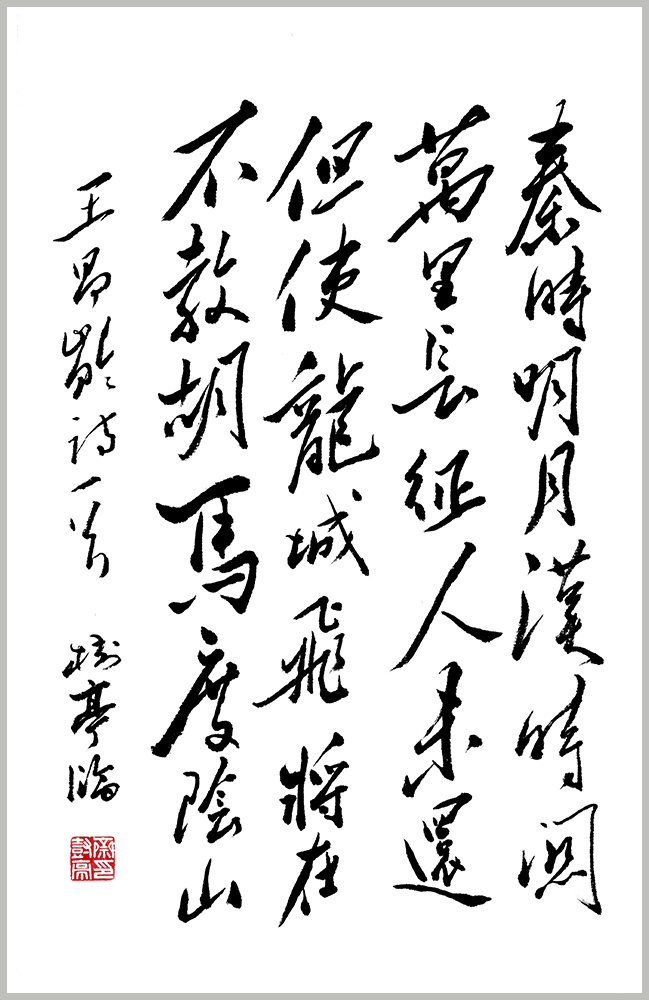 秦時明月漢時關
萬里長征人未還
但使龍城飛將在
不教胡馬度陰山
王昌齡詩一首 樹亭